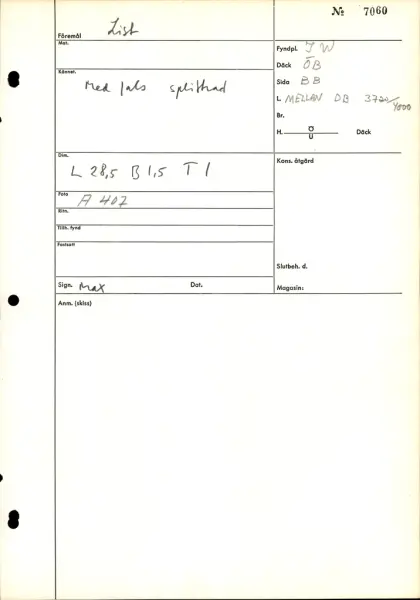 № 7060
Föremål List
Mat.
Fyndpl. IW
Däck ÖB
Sida BB
L. MELLAN DB 3720/4000
Br.
H. Ö/U Däck
Kännet. Med fals splittrad
Dim. L 28,5 B 1,5 T 1
Kons. åtgärd
Foto A 407
Ritn.
Tillh. fynd
Fortsatt
Slutbeh. d.
Sign. Max Dat.
Magasin:
Anm. (skiss)